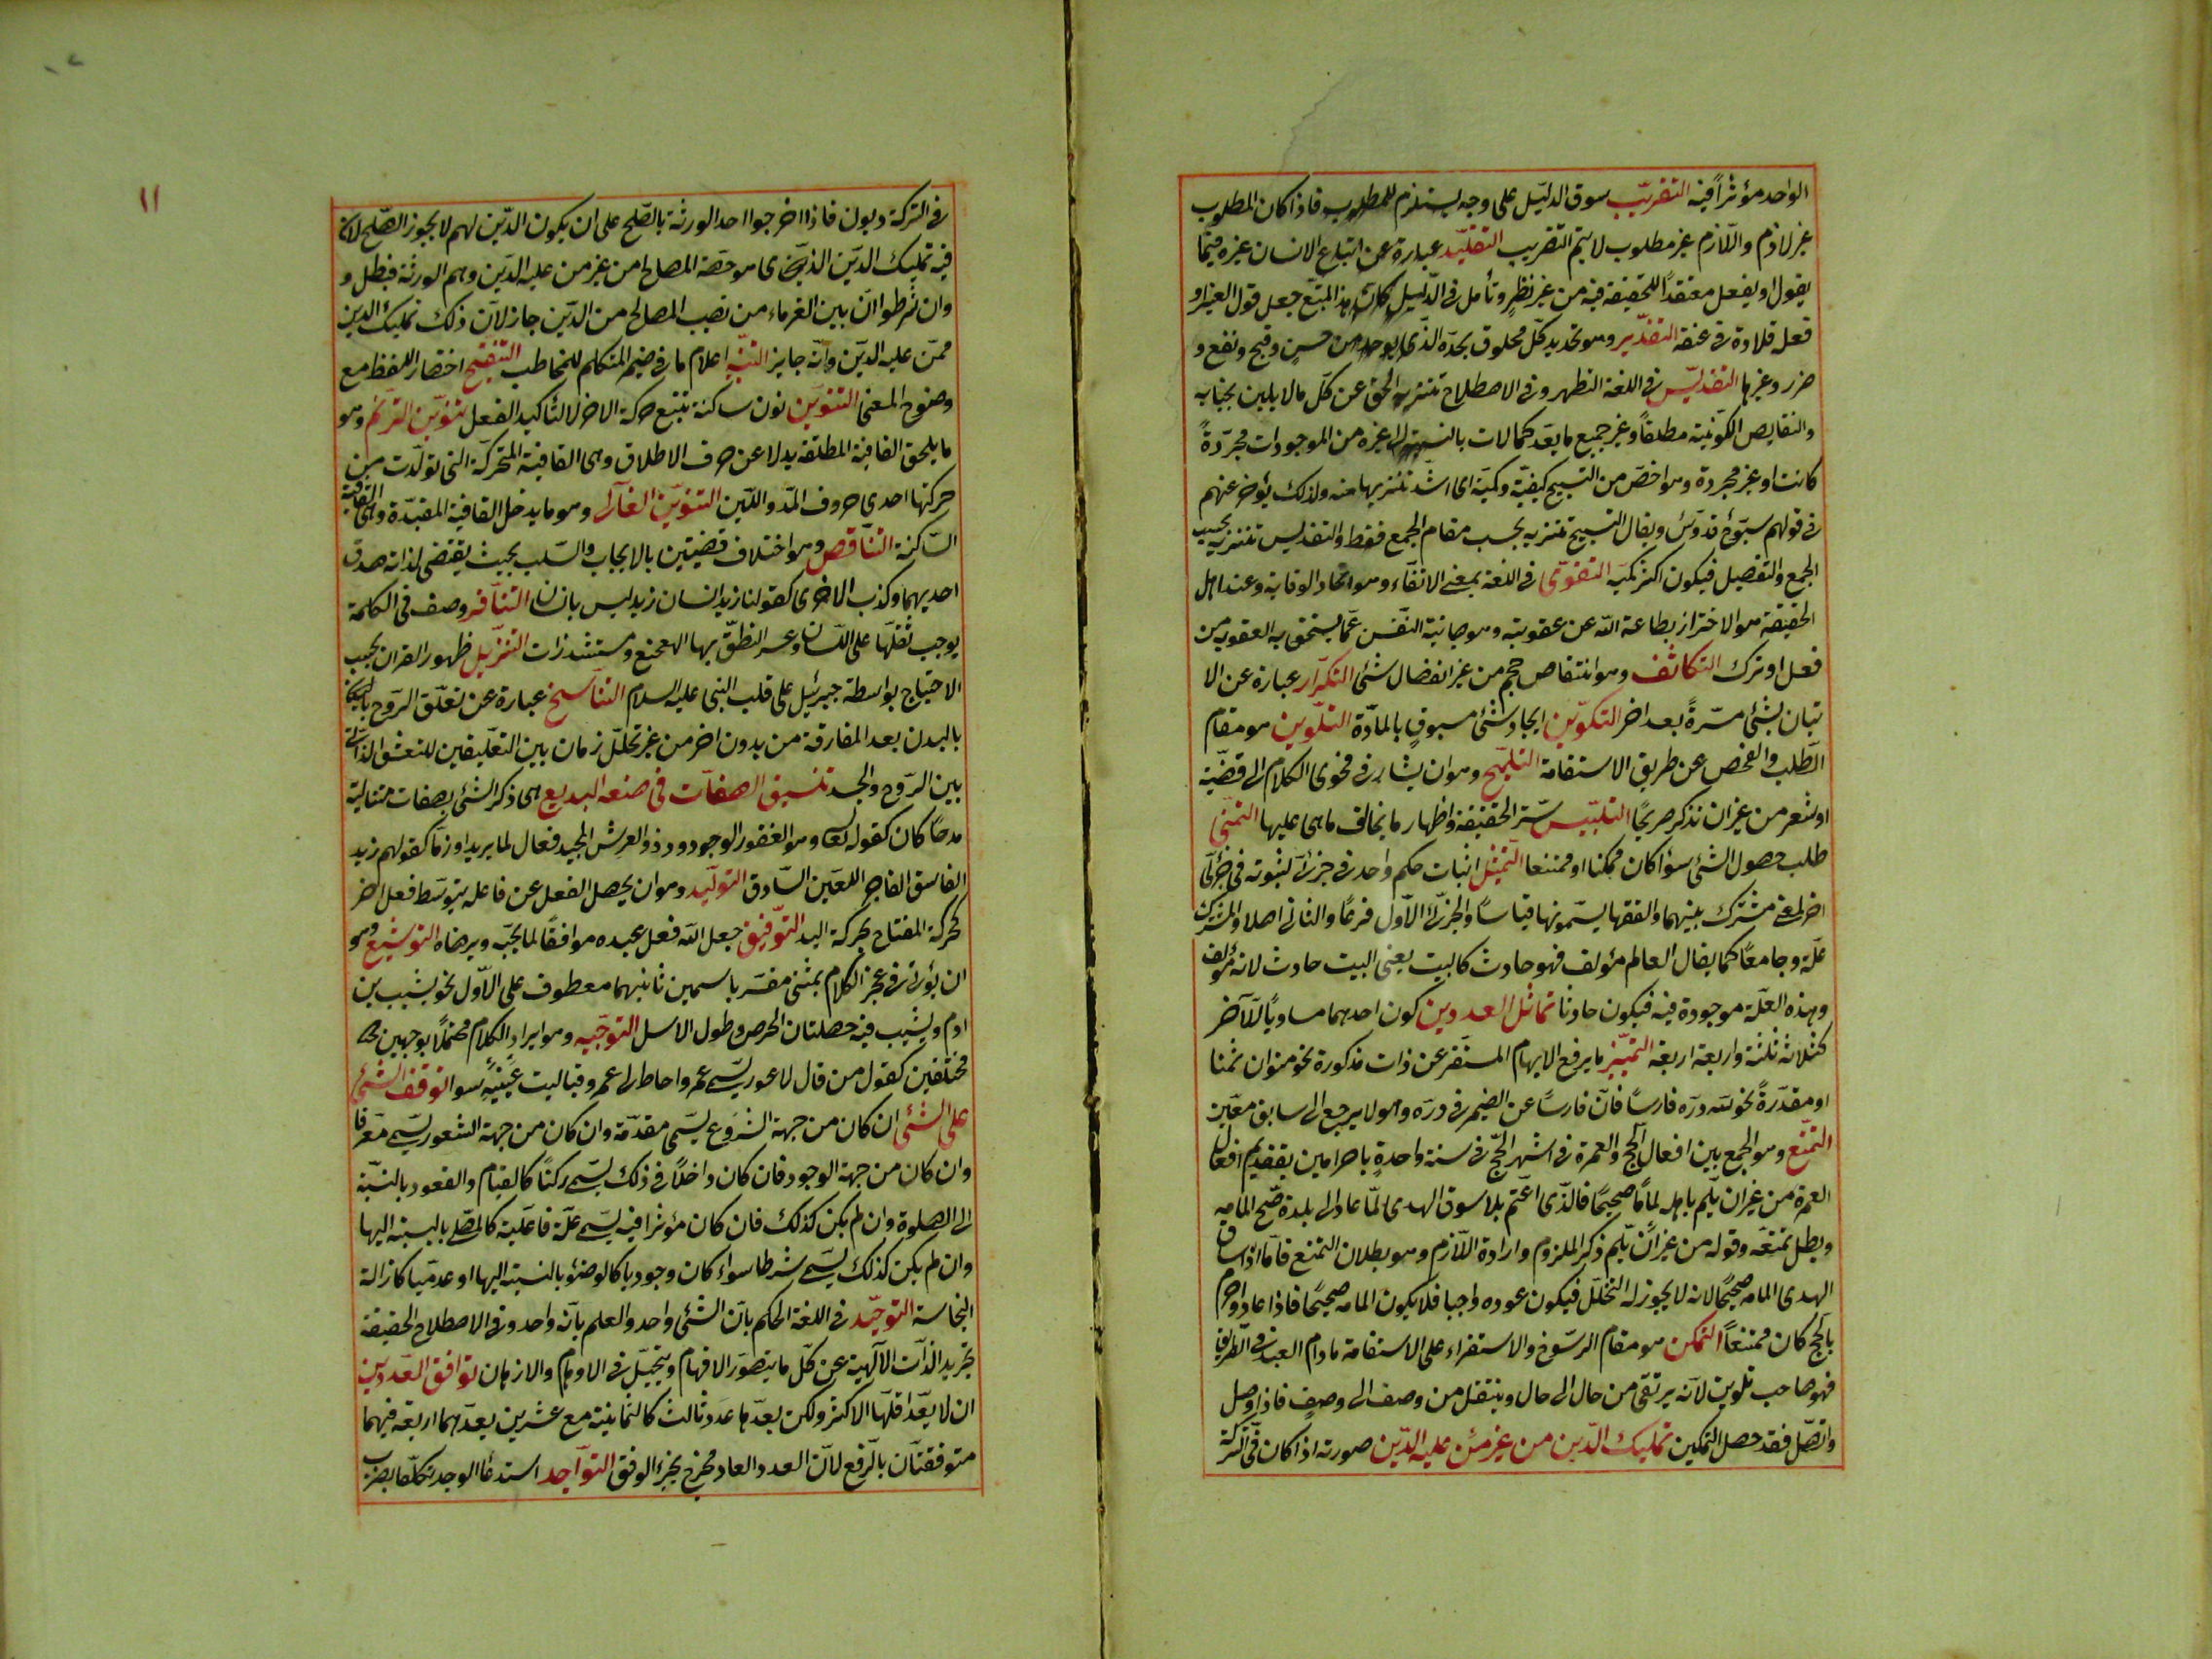 الواحد مؤثراً فيه التقريب سوق الدليل على وجه يستلزم للمطلوب فاذا كان المطلوب
غير لازم واللازم غير مطلوب لا يتم التقريب التقليد عبارة عن اتباع الانسان غيره فيما
يقول او يفعل معتقداً للحقيقة فيه من غير نظر وتأمل فى الدليل كان هذا المتبع جعل قول الغير او
فعله قلادة فى عنقه التقدير وهو تحديد كل مخلوق بحده الذى يوجد من حسن وقبح ونفع و
ضرر وغيرها التقديس فى اللغة التطهير وفى الاصطلاح تنزيه الحق عن كل ما لا يليق بجنابه
والنقايص الكونية مطلقاً وعن جميع ما يعد كمالات بالنسبة الى غيره من الموجودات مجردةً
كانت او غير مجردة وهو اخص من التسبيح كيفية وكمية اى اشد تنزيها منه ولذلك يؤخر عنهم
فى قولهم سبوح قدوس ويقال التسبيح تنزيه بحسب مقام الجمع فقط والتقديس تنزيه بحسب
الجمع والتفصيل فيكون اكثر كمية التقوى فى اللغة بمعنى الاتقاء وهو اتخاد الوقاية وعند اهل
الحقيقة هو الاحتراز بطاعة الله عن عقوبته وهو صيانة النفس عما يستحق به العقوبة من
فعل او ترك التكاثف وهو انتقاص حجم من غير انفصال شئ التكرار عبارة عن الا
تيان بشئ مرةً بعد اخر التكوين ايجاد شئ مسبوق بالمادة التلوين هو مقام
الطلب والفحص عن طريق الاستقامة التلميح وهو ان يشار فى فحوى الكلام الى قصة
او شعر من غير ان تذكر صريحا التلبيس ستر الحقيقة واظهار ما يخالف ما هى عليها التمنى
طلب حصول الشئ سواً كان ممكنا او ممتنعا التمثيل اثبات حكم واحد فى جزئى لثبوته فى جزئى
اخر لمعنى مشترك بينهما والفقها يسمونها قياساً والجزئى الاول فرعاً والثانى اصلا والمشترك
علة وجامعاً كما يقال العالم مؤلف فهو حادث كالبيت يعنى البيت حادث لانه مؤلف
وهذه العلة موجودة فيه فيكون حادثا تماثل العددين كون احدهما مساوياً للآخر
كثلاثة ثلثة واربعة اربعة التمييز ما يرفع الابهام المستقر عن ذات مذكورة نحو منوان سمنا
او مقدرةً نحو لله دره فارساً فان فارساً عن الضمير فى دره وهو لا يرجع الى سابق معين
التمتع وهو الجمع بين افعال الحج والعمرة فى اشهر الحج فى سنة واحدةٍ باحرامين بتقديم افعال
العمرة من غير ان يلم باهله لماما صحيحًا فالذى اعتم بلا سوق الهدى لما عاد الى بلده صح المامه
وبطل تمتعه وقوله من غير ان يلم ذكر الملزوم وارادة اللازم وهو بطلان التمتع فاما اذا ساق
الهدى المامه صحيحًا لانه لا يجوز له التحلل فيكون عوده واجبا فلا يكون المامه صحيحًا فاذا عاد واحرم
بالحج كان متمتعاً التمكن هو مقام الرسوخ والاستقراء على الاستقامة ما دام العبد فى الطريق
فهو صاحب تلوين لانه يرتقى من حال الى حال وينتقل من وصف الى وصف فاذا وصل
واتصل فقد حصل التمكين تمليك الدين من غير من عليه الدين صورته اذا كان فى التركة
١١
فى التركة ديون فاذا اخرجوا احد الورثة بالصلح على ان يكون الدين لهم لا يجوز الصلح لان
فيه تمليك الدين الذى هو حصة المصالح من غير من عليه الدين وهم الورثة فبطل و
وان شرطوا ان بين الغرماء من نصيب المصالح من الدين جاز لان ذلك تمليك الدين
ممن عليه الدين وانه جايز التنبيه اعلام ما فى ضمير المتكلم للمخاطب التنقيح اختصار اللفظ مع
وضوح المعنى التنوين نون ساكنة تتبع حركة الاخر لا لتأكيد الفعل تنوين الترنم وهو
ما يلحق القافية المطلقة بدلا عن حرف الاطلاق وهى القافية المتحركة التى تولدت من
حركتها احدى حروف المد واللين التنوين الغالى وهو ما يدخل القافية المقيدة وهى القافية
الساكنة التناقض وهو اختلاف قضيتين بالايجاب والسلب بحيث يقتضى لذاته صدق
احديهما وكذب الاخرى كقولنا زيد انسان زيد ليس بانسان التنافر وصف فى الكلمة
يوجب ثقلها على اللسان وعسر النطق بها الهعخع ومستشذرات التنزيل ظهور القران بحسب
الاحتياج بواسطة جبرئيل على قلب النبى عليه السلام التناسخ عبارة عن تعلق الروح
بالبدن بعد المفارقة من بدون اخر من غير تخلل زمان بين التعليقين للتعشق الذاتى
بين الروح والجسد تنسيق الصفات فى صنعه البديع هى ذكر الشئ بصفات متتالية
مدحاً كان كقوله تعالى وهو الغفور الودود ذو العرش المجيد فعال لما يريد او ذماً كقولهم زيد
الفاسق الفاجر اللعين السارق التوليد وهو ان يحصل الفعل عن فاعله بتوسط فعل اخر
كحركة المفتاح بحركة اليد التوفيق جعل الله فعل عبيده موافقًا لما يحبه ويرضاه التوشيع وهو
ان يؤتى فى عجز الكلام بمثنى مفسر باسمين ثانيهما معطوف على الاول نحو يشيب بن
ادم ويشيب فيه خصلتان الحرص وطول الامل التوجيه وهو ايراد الكلام محتملًا بوجهين
مختلفين كقول من قال لاعور يسمى عمرو خاط لى عمرو قبا ليت عينيه سوا توقف الشئ
على الشئ ان كان من جهة الشروع يسمى مقدمة وان كان من جهة الشعور يسمى معرفا
وان كان من جهة الوجود فان كان داخلًا فى ذلك يسمى ركناً كالقيام والقعود بالنسبة
الى الصلوة وان لم يكن كذلك فان كان مؤثرا فيه يسمى علة فاعلية كالمصلى بالنسبة اليها
وان لم يكن كذلك يسمى شرطا سواء كان وجوديا كالوضؤ بالنسبة اليها او عدميا كازالة
النجاسة التوحيد فى اللغة الحكم بان الشئ واحد والعلم بانه واحد وفى الاصطلاح الحقيقة
تجريد الذات الآلهية عن كل ما يتصور الافهام ويتخيل فى الاوهام والاذهان توافق العددين
ان لا يعد اقلها الاكثر ولكن يعدهما عدد ثالث كالثمانية مع عشرين يعدهما اربعة فهما
متوفقتان بالرفع لان العدد العاد مخرج بجزء الوفق التواجد استدعاً الوجد تكلفا بضرب